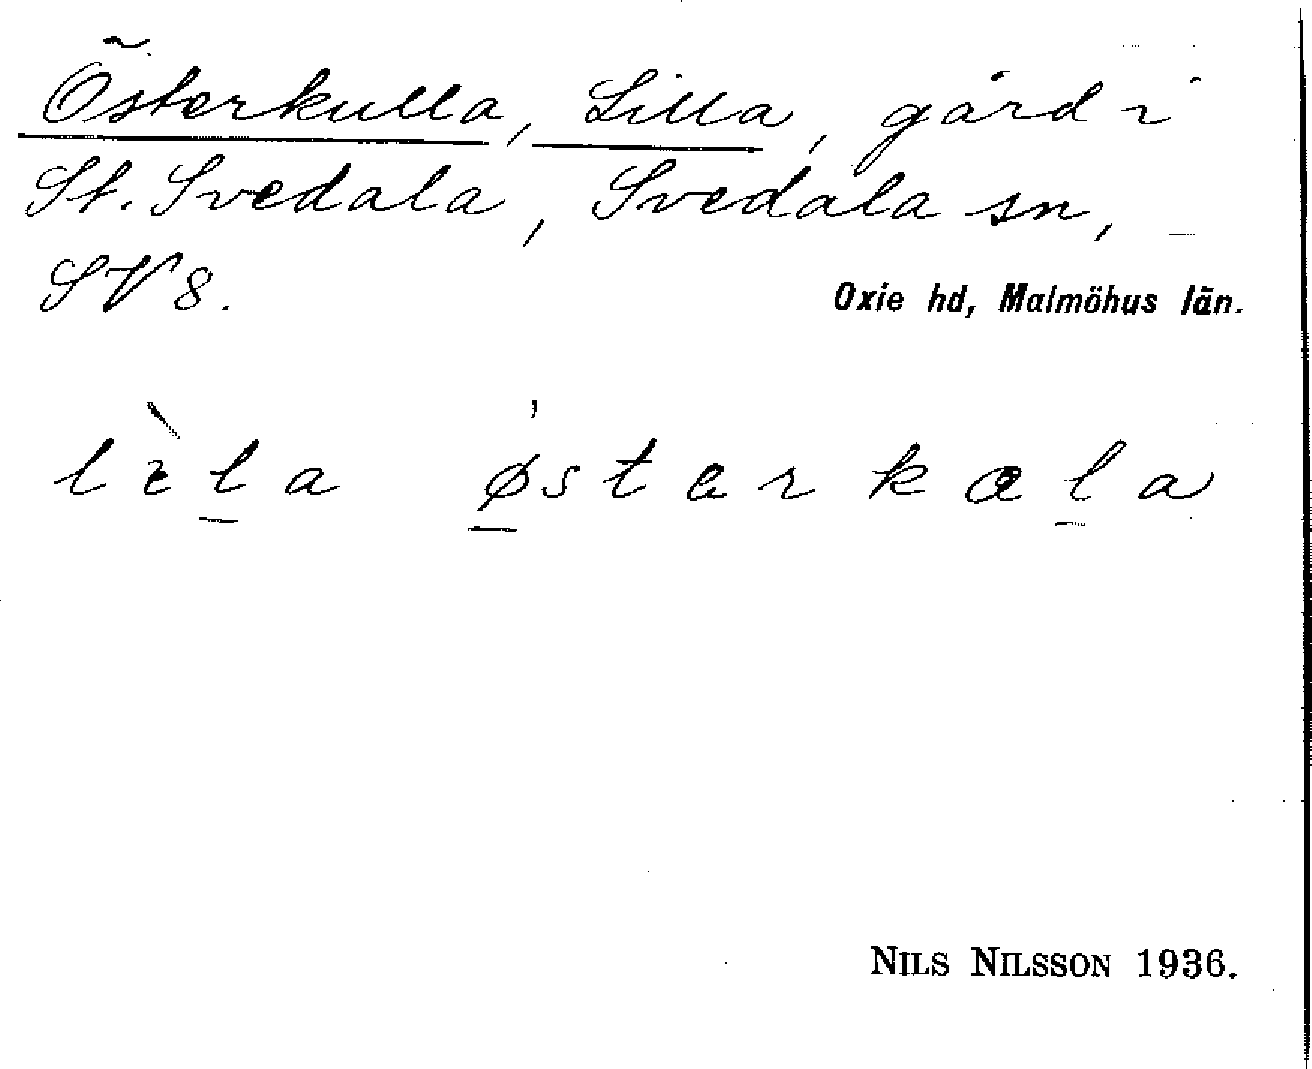 Österkulla, Lilla, gård i
St. Svedala, Svedala sn,
SV 8.
Oxie hd, Malmöhus län.
lìla østerkæla
NILS NILSSON 1936.